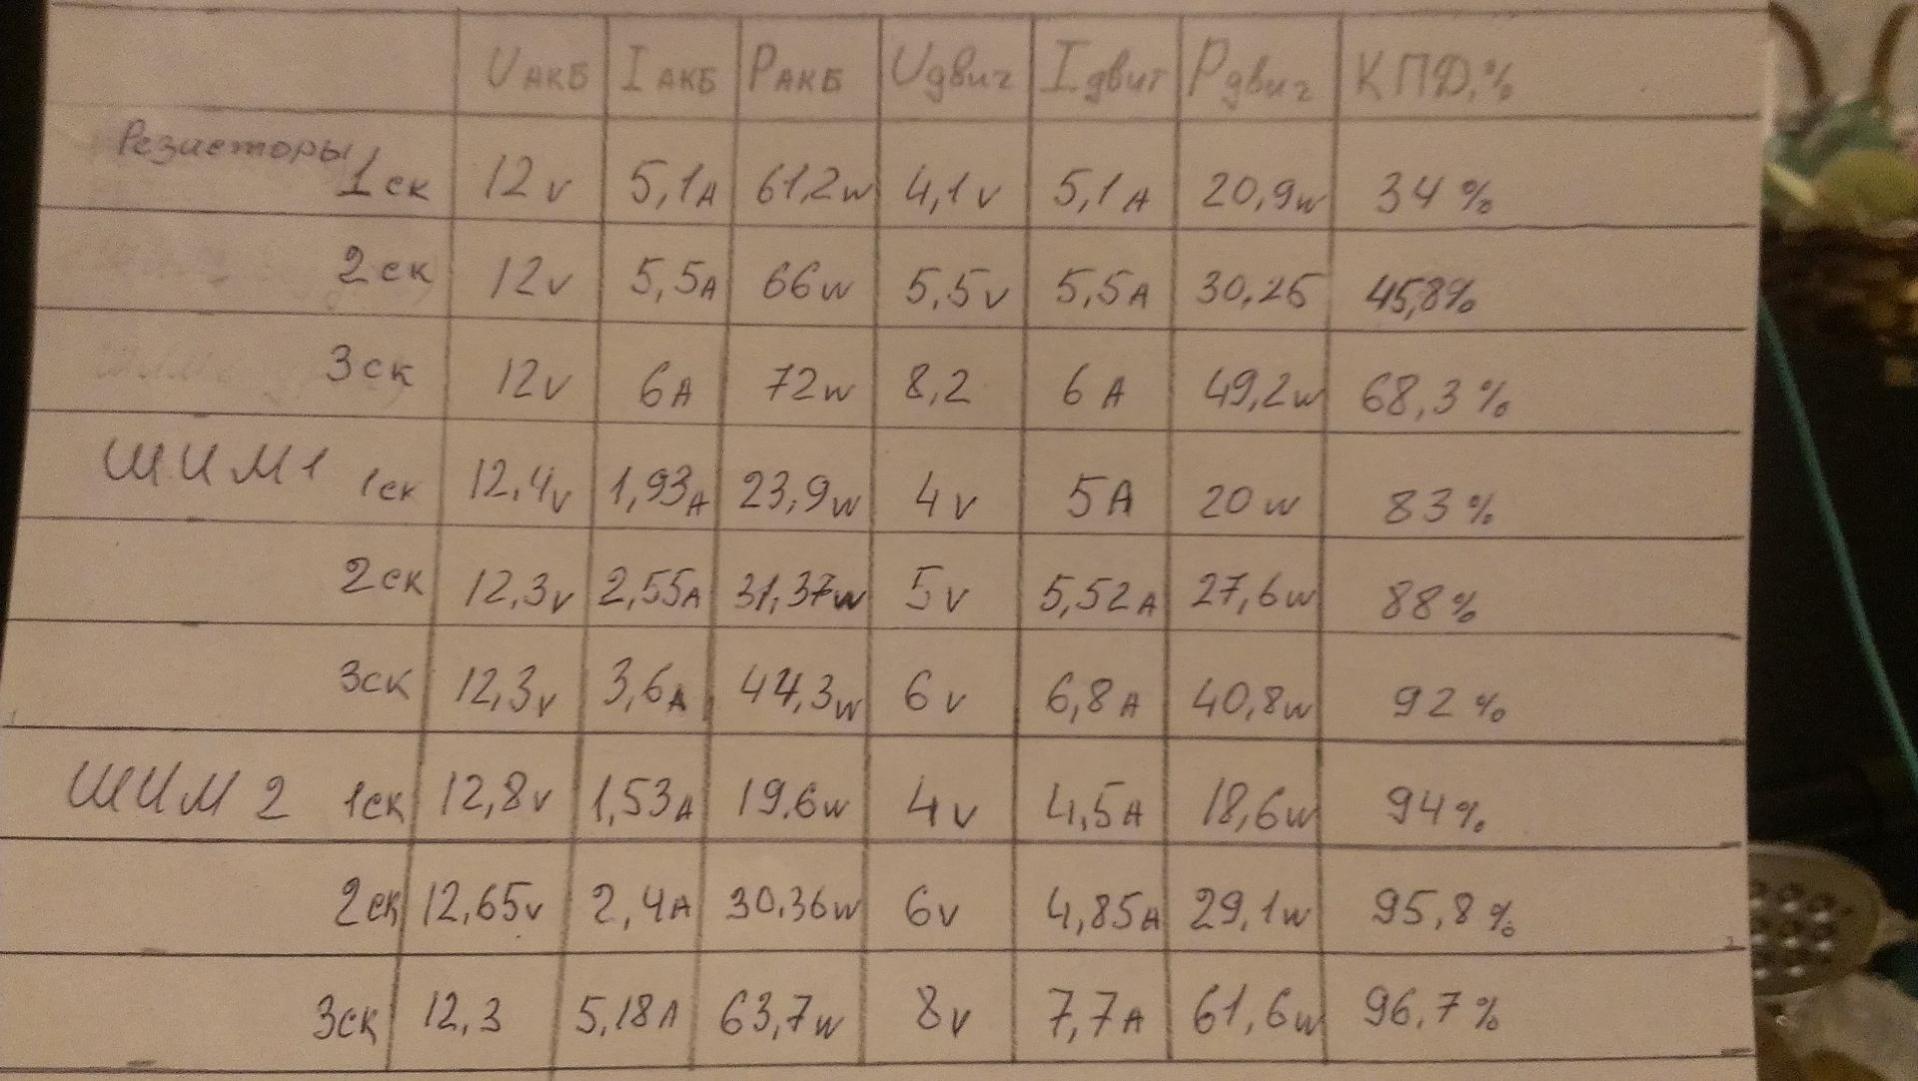 UАКБ IАКБ PАКБ Uдвиг Iдвиг Pдвиг КПД,%
Резисторы 1ск 12v 5,1А 61,2w 4,1v 5,1А 20,9w 34%
2ск 12v 5,5А 66w 5,5v 5,5А 30,25 45,8%
3ск 12v 6А 72w 8,2 6А 49,2w 68,3%
ШИМ1 1ск 12,4v 1,93А 23,9w 4v 5А 20w 83%
2ск 12,3v 2,55А 31,37w 5v 5,52А 27,6w 88%
3ск 12,3v 3,6А 44,3w 6v 6,8А 40,8w 92%
ШИМ2 1ск 12,8v 1,53А 19.6w 4v 4,5А 18,6w 94%
2ск 12,65v 2,4А 30.36w 6v 4,85А 29,1w 95,8%
3ск 12,3 5,18А 63,7w 8v 7,7А 61,6w 96.7%